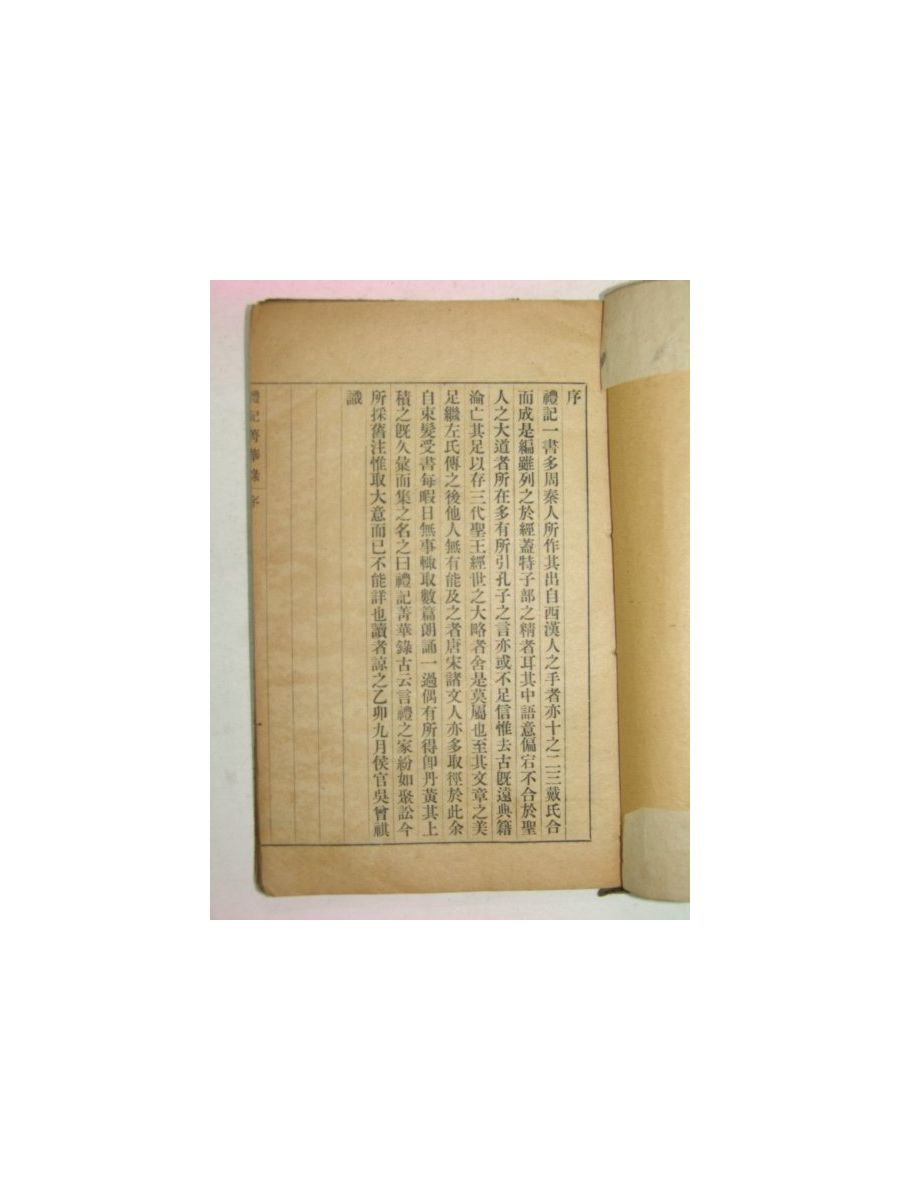 序
禮記一書多周秦人所作其出自西漢人之手者亦十之二三戴氏合
而成是編雖列之於經蓋特子部之精者耳其中語意偏宕不合於聖
人之大道者所在多有所引孔子之言亦或不足信惟去古既遠典籍
淪亡其足以存三代聖王經世之大略者舍是莫屬也至其文章之美
足繼左氏傳之後他人無有能及之者唐宋諸文人亦多取徑於此余
自束髮受書每暇日無事輙取數篇朗誦一過偶有所得卽丹黃其上
積之旣久彙而集之名之曰禮記菁華錄古云言禮之家紛如聚訟今
所採舊注惟取大意而已不能詳也讀者諒之乙卯九月侯官吳曾祺
識
禮記菁華錄 序